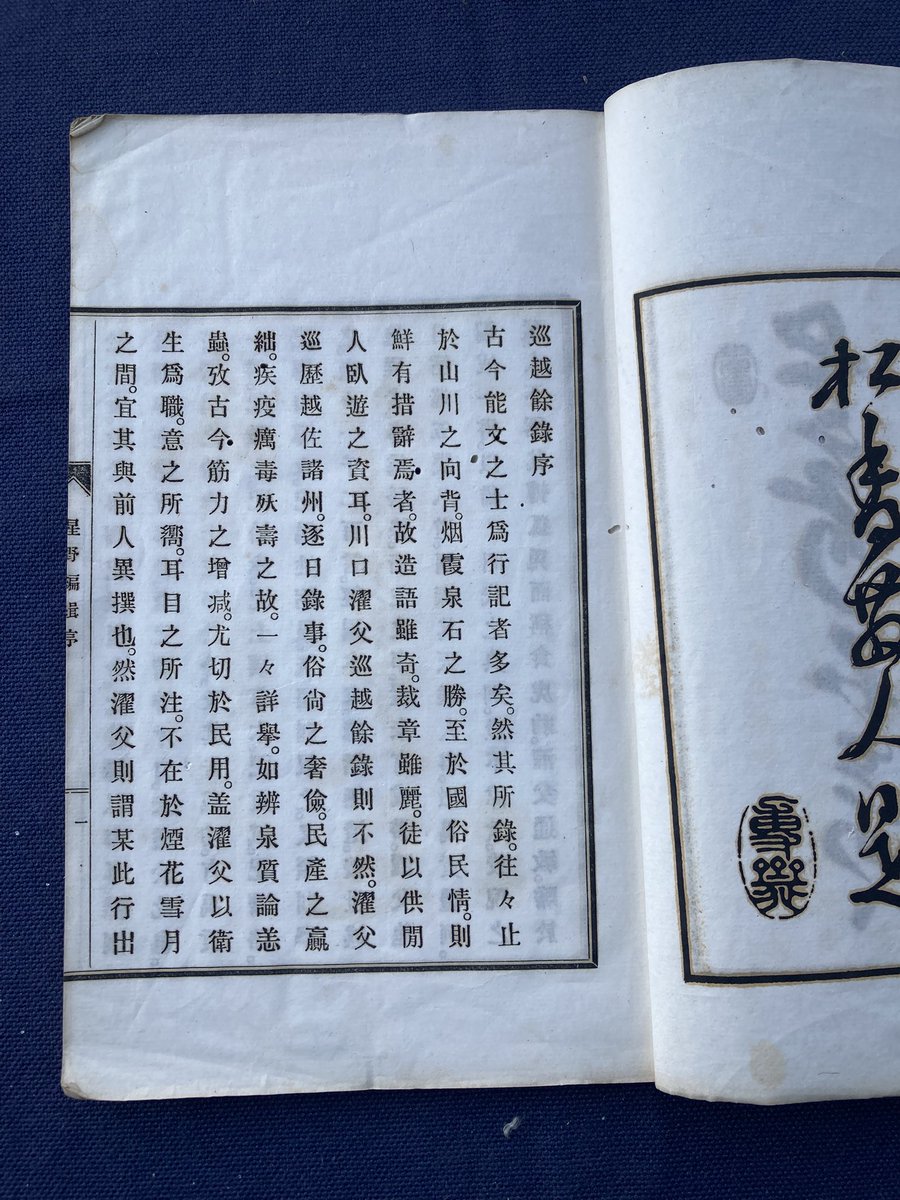 松
人
題
巡越餘錄序
古今能文之士爲行記者多矣。然其所錄。往々止
於山川之向背。烟霞泉石之勝。至於國俗民情。則
鮮有措辭焉者。故造語雖奇。裁章雖麗。徒以供閒
人臥遊之資耳。川口濯父巡越餘錄則不然。濯父
巡歷越佐諸州。逐日錄事。俗尙之奢儉。民產之贏
絀。疾疫癘毒殀壽之故。一々詳擧。如辨泉質論恙
蟲。攷古今筋力之增減。尤切於民用。盖濯父以衛
生爲職。意之所嚮。耳目之所注。不在於煙花雪月
之間。宜其與前人異撰也。然濯父則謂某此行出
一